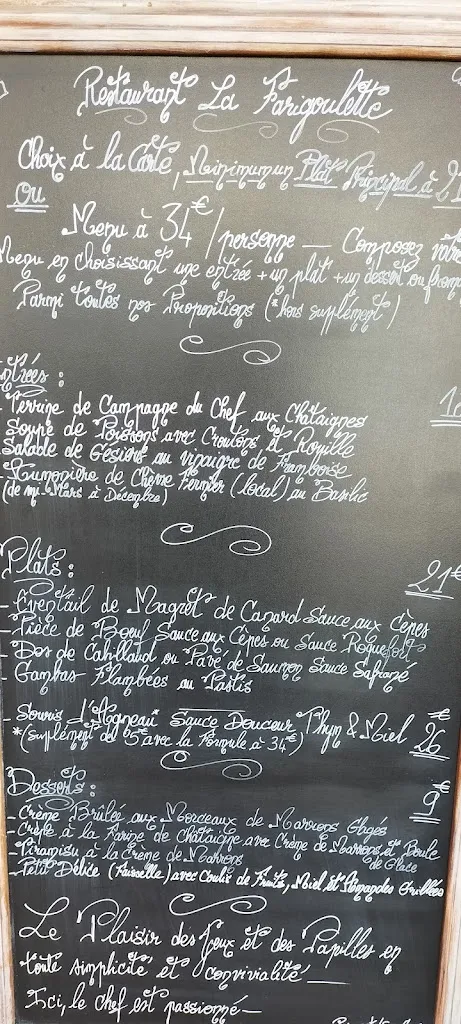 Restaurant La Farigoulette
Choix à la Carte, Minimumun Plat Principal à 21
ou
Menu à 34€/personne — Composez votre
Menu en choisissant une entrée + un plat + un dessert ou from
Parmi toutes nos Propositions (*hors supplément)
Entrées :
- Terrine de Campagne du Chef aux Châtaignes
- Soupe de Poissons avec Croutons et Rouille
- Salade de Gésiers au vinaigre de Framboise
- de Chèvre Fermier (local) au Basilic
(de mi-Mars à Décembre)
Plats :
21€
- Eventail de Magret de Canard Sauce aux Cèpes
- Pièce de Boeuf Sauce aux Cèpes ou Sauce Roquefort
- Dos de Cabillaud ou Pavé de Saumon Sauce Safrané
- Gambas Flambées au Pastis
- Souris d'Agneau* Sauce Douceur Thym & Miel 26€
*(suplément de 5€ avec la Formule à 34€)
Desserts :
9€
- Crème Brûlée aux Morceaux de Marrons Glacés
- Crêpe à la Farine de Châtaigne avec Crème de Marrons et Boule
de Glace
- Tiramisu à la Crème de Marrons
- Petit Délice (Faisselle) avec Coulis de Fruits, Miel et Amandes Grillées
Le Plaisir des Yeux et des Papilles en
toute simplicité et convivialité —
Ici, le chef est passionné —